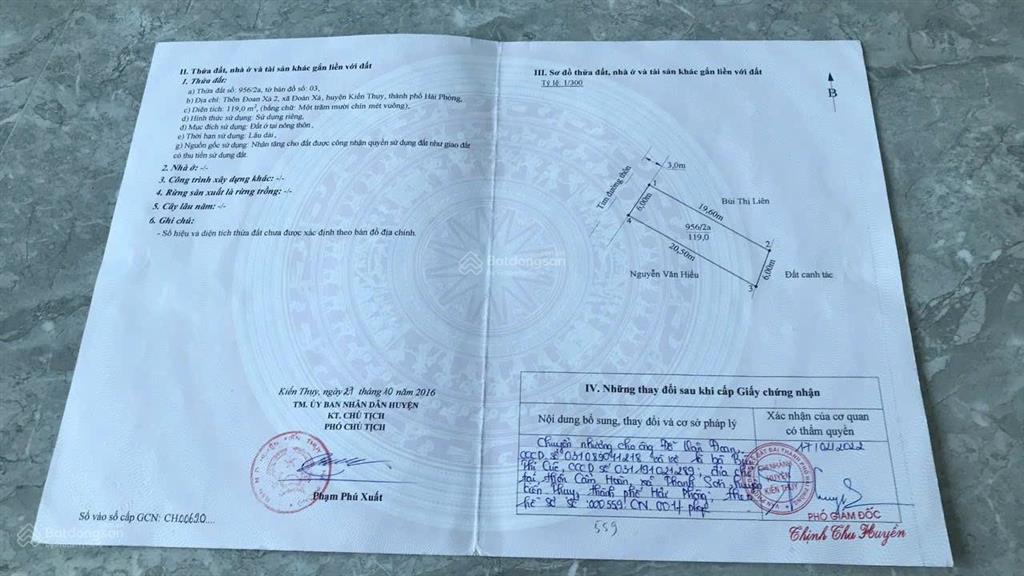 II. Thửa đất, nhà ở và tài sản khác gắn liền với đất
1. Thửa đất:
a) Thửa đất số: 956/2a, tờ bản đồ số: 03,
b) Địa chỉ: Thôn Đoan Xá 2, xã Đoàn Xá, huyện Kiến Thụy, thành phố Hải Phòng,
c) Diện tích: 119,0 m², (bằng chữ: Một trăm mười chín mét vuông),
d) Hình thức sử dụng: Sử dụng riêng,
đ) Mục đích sử dụng: Đất ở tại nông thôn,
e) Thời hạn sử dụng: Lâu dài,
g) Nguồn gốc sử dụng: Nhận tặng cho đất được công nhận quyền sử dụng đất như giao đất
có thu tiền sử dụng đất.
2. Nhà ở: -/-
3. Công trình xây dựng khác: -/-
4. Rừng sản xuất là rừng trồng: -/-
5. Cây lâu năm: -/-
6. Ghi chú:
- Số hiệu và diện tích thửa đất chưa được xác định theo bản đồ địa chính.
Kiến Thụy, ngày 27 tháng 10 năm 2016
TM. ỦY BAN NHÂN DÂN HUYỆN
KT. CHỦ TỊCH
PHÓ CHỦ TỊCH
Phạm Phú Xuất
Số vào sổ cấp GCN: CH00620....
III. Sơ đồ thửa đất, nhà ở và tài sản khác gắn liền với đất
Tỷ lệ: 1/300
B
3,0m
Tim đường thôn
1
6,00m
19,60m
Bùi Thị Liên
4
956/2a
119,0
2
20,50m
6,00m
Nguyễn Văn Hiếu
3
Đất canh tác
IV. Những thay đổi sau khi cấp Giấy chứng nhận
Nội dung bổ sung, thay đổi và cơ sở pháp lý
Xác nhận của cơ quan
có thẩm quyền
Chuyển nhượng cho ông
CCCD số 031089041218 và vợ là bà
CCCD số 031191021289, địa chỉ
tại thôn Cẩm Hoàn, xã Thanh Sơn, huyện
Kiến Thụy, thành phố Hải Phòng, theo
hồ sơ số 000559.CN.001
CHI NHÁNH
HUYỆN
KIẾN THỤY
PHÓ GIÁM ĐỐC
Thịnh Thu Huyền
559
Batdongsan
Batdongsan
Batdongsan